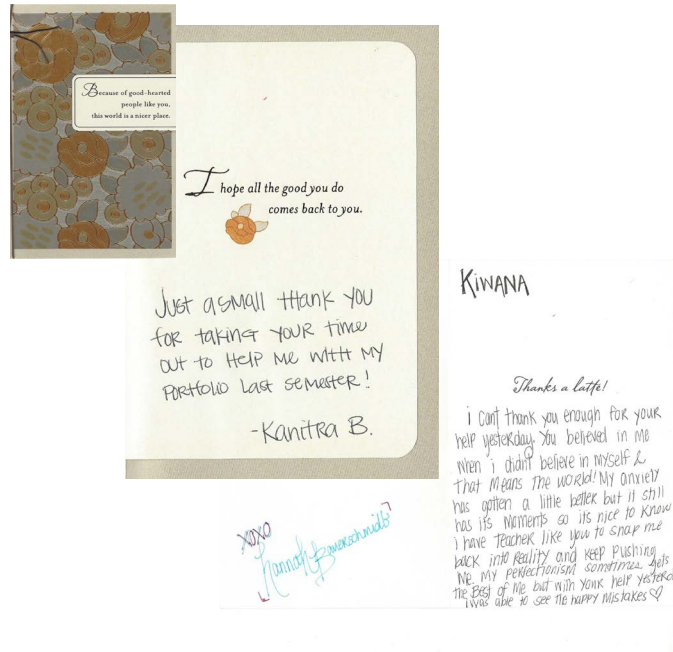 Because of good-hearted
people like you,
this world is a nicer place.
I hope all the good you do
comes back to you.
Just a small thank you
for taking your time
out to help me with my
portfolio last semester!
-Kanitra B.
KIWANA
Thanks a latte!
i cant thank you enough for your
help yesterday. You believed in me
when i didn't believe in myself &
that means the world! My anxiety
has gotten a little better but it still
has its moments so its nice to know
i have teacher like you to snap me
back into reality and keep pushing
me. My perfectionism sometimes gets
the best of me but with your help yesterd
i was able to see the happy mistakes ♡
xoxo
Hannah